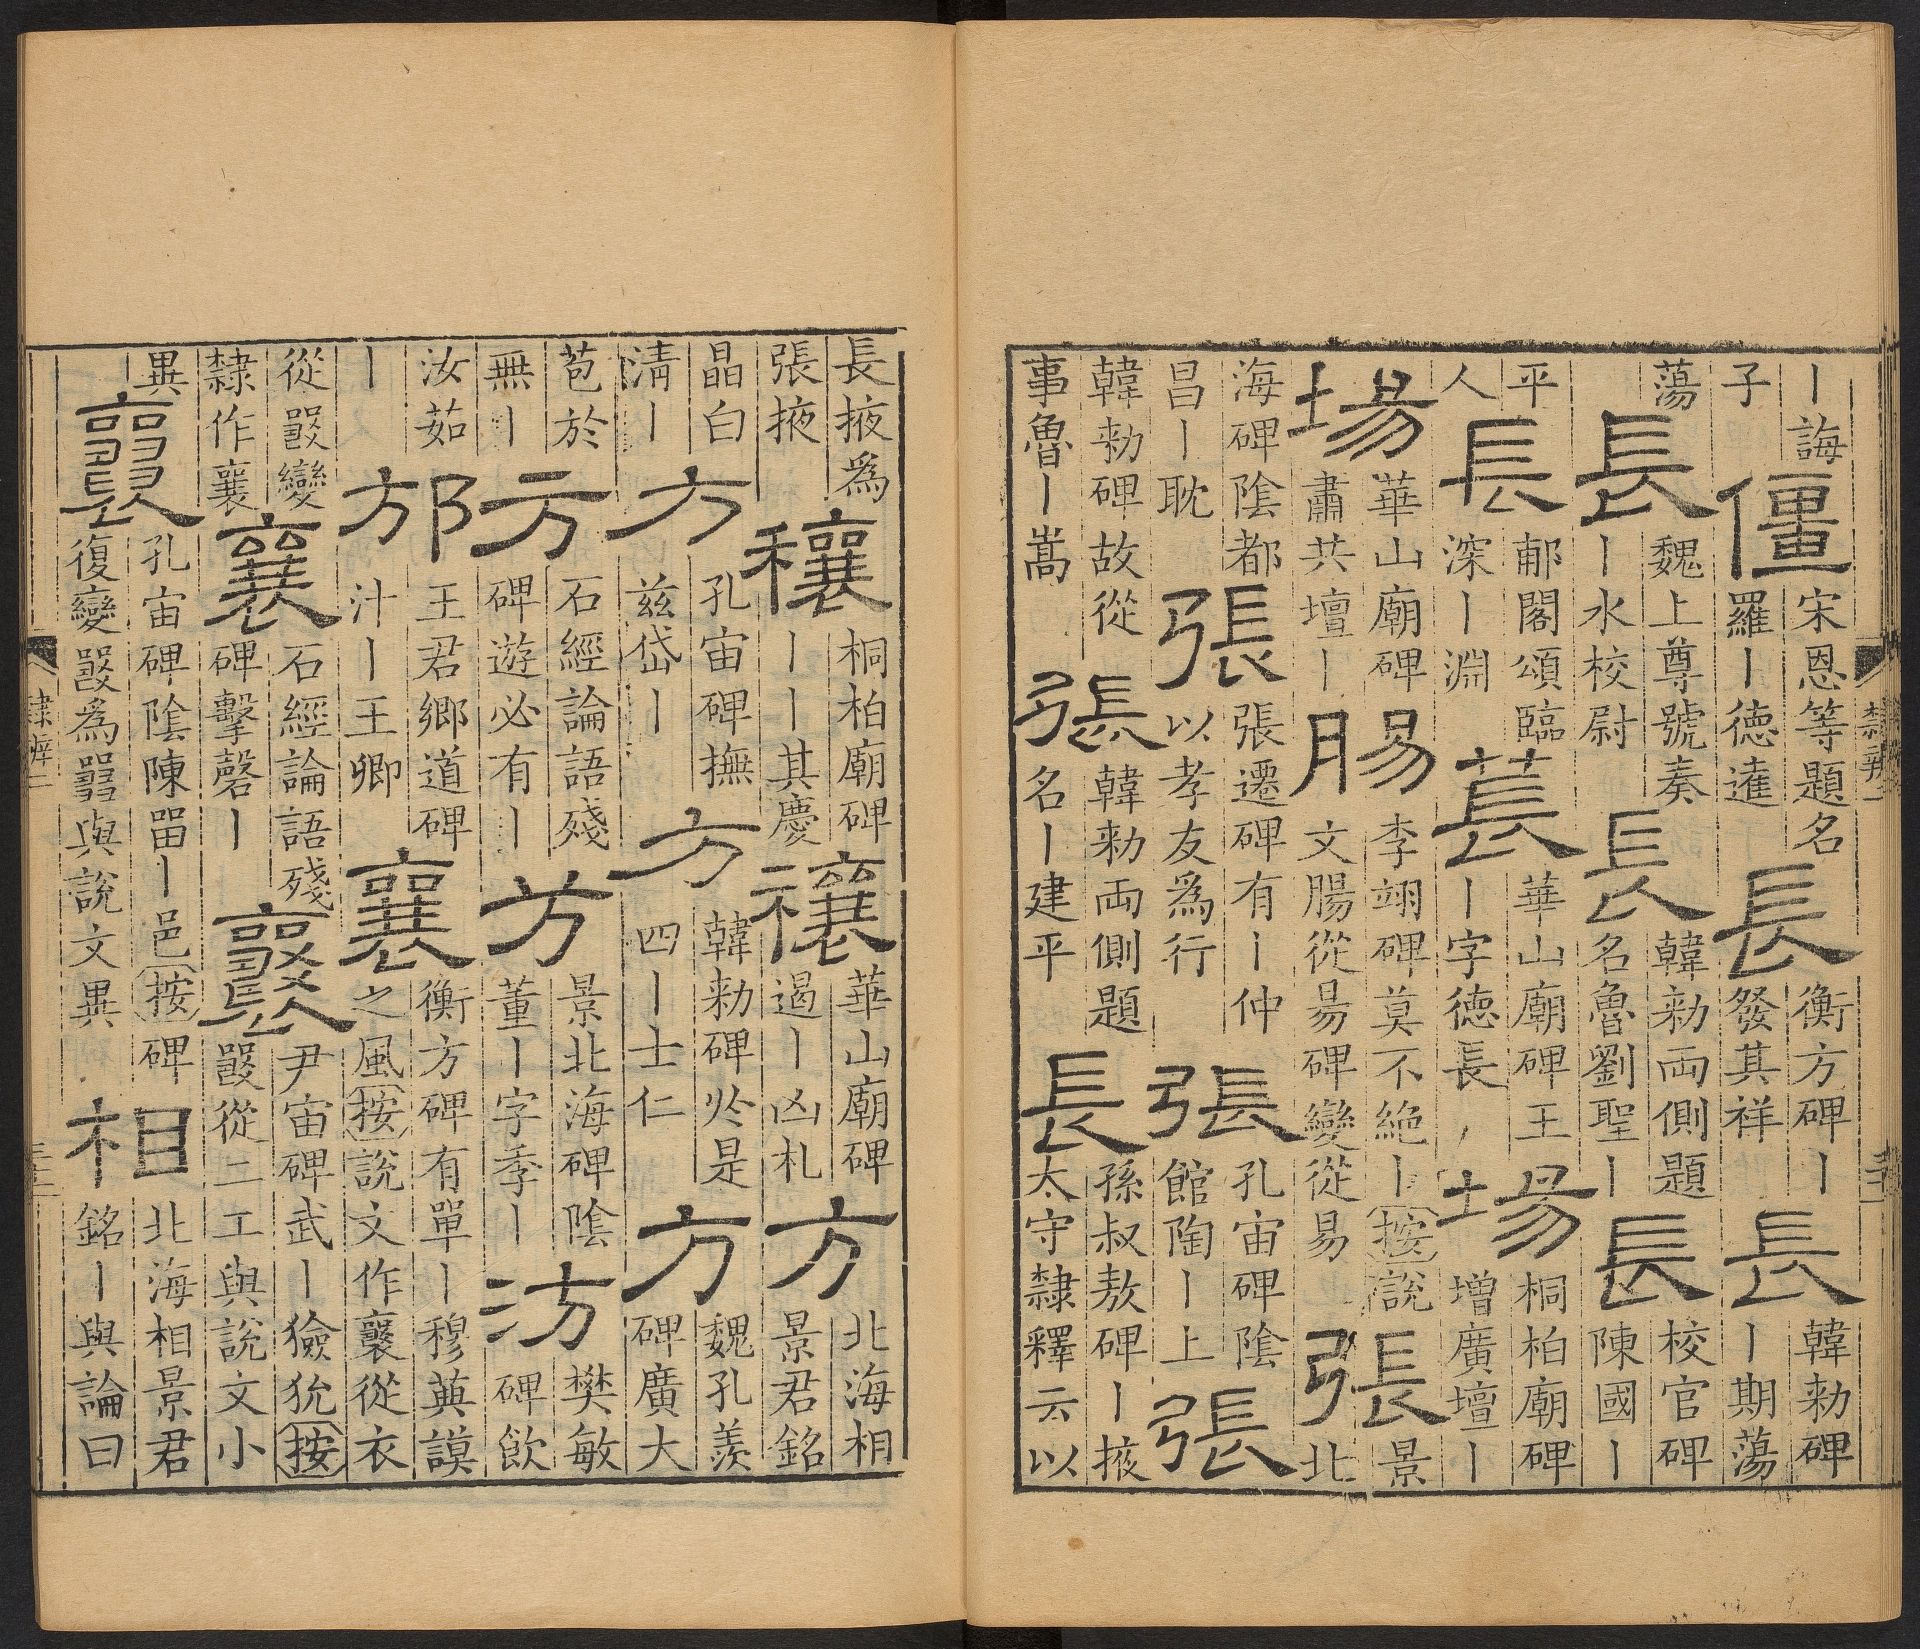 ｜誨子僵宋恩等題名羅｜德長衡方碑｜發其祥長韓勑碑｜期蕩
蕩長魏上尊號奏｜水校尉長韓勑両側題名魯劉聖｜長校官碑陳國｜
平人長郙閣頌臨深｜淵萇華山廟碑王｜字德長場桐柏廟碑增廣壇｜
場華山廟碑肅共壇｜腸李翊碑莫不絶｜按說文腸從昜碑變從易張景北
海碑陰都昌｜耽張張遷碑有｜仲以孝友爲行張孔宙碑陰館陶｜上張
韓勑碑故從事魯｜嵩張韓勑両側題名｜建平長孫叔敖碑｜掖太守隸釋云以
隸辨二
長掖爲張掖穰桐柏廟碑｜｜其慶禳華山廟碑遏｜凶札方北海相景君銘
晶白清｜方孔宙碑撫兹岱｜方韓勑碑於是四｜士仁方魏孔羨碑廣大
苞於無｜方石經論語殘碑遊必有｜方景北海碑陰董｜字季｜汸樊敏碑飲
汝茹｜邡王君鄉道碑汁｜王卿襄衡方碑有單｜穆謨之風按說文作襄從衣
從𤕦變隸作襄襄石經論語殘碑擊磬｜襄尹宙碑武｜獫狁按𤕦從二工與說文小
異襄孔宙碑陰陳畱｜邑按碑復變𤕦爲與說文異相北海相景君銘｜與論曰
隸辨二